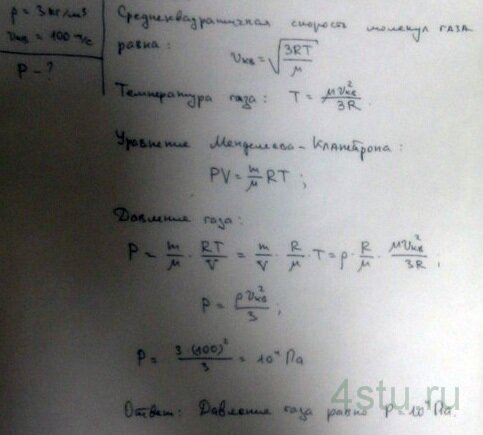 ρ = 3 кг/м³
υкв = 100 м/с
P - ?
Среднеквадратичная скорость молекул газа
равна: υкв = √(3RT/μ)
Температура газа: T = μυкв²/3R.
Уравнение Менделеева-Клапейрона:
PV = m/μ RT;
Давление газа:
P = m/μ · RT/V = m/V · R/μ · T = ρ · R/μ · μυкв²/3R;
P = ρυкв²/3;
P = 3·(100)²/3 = 10⁴ Па
Ответ: Давление газа равно P = 10⁴ Па.
4stu.ru